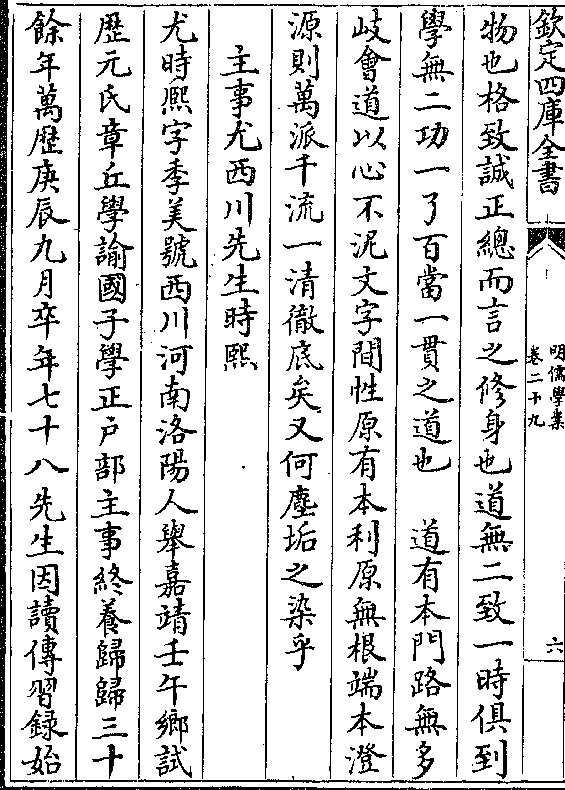 欽定四庫全書
明儒學案
卷二十九
六
物也格致誠正總而言之修身也道無二致一時俱到
學無二功一了百當一貫之道也　道有本門路無多
岐會道以心不泥文字間性原有本利原無根端本澄
源則萬派千流一清徹底矣又何塵垢之染乎
主事尤西川先生時熙
尤時熙字季美號西川河南洛陽人舉嘉靖壬午鄉試
歴元氏章丘學諭國子學正戶部主事終養歸歸三十
餘年萬歴庚辰九月卒年七十八先生因讀傳習録始